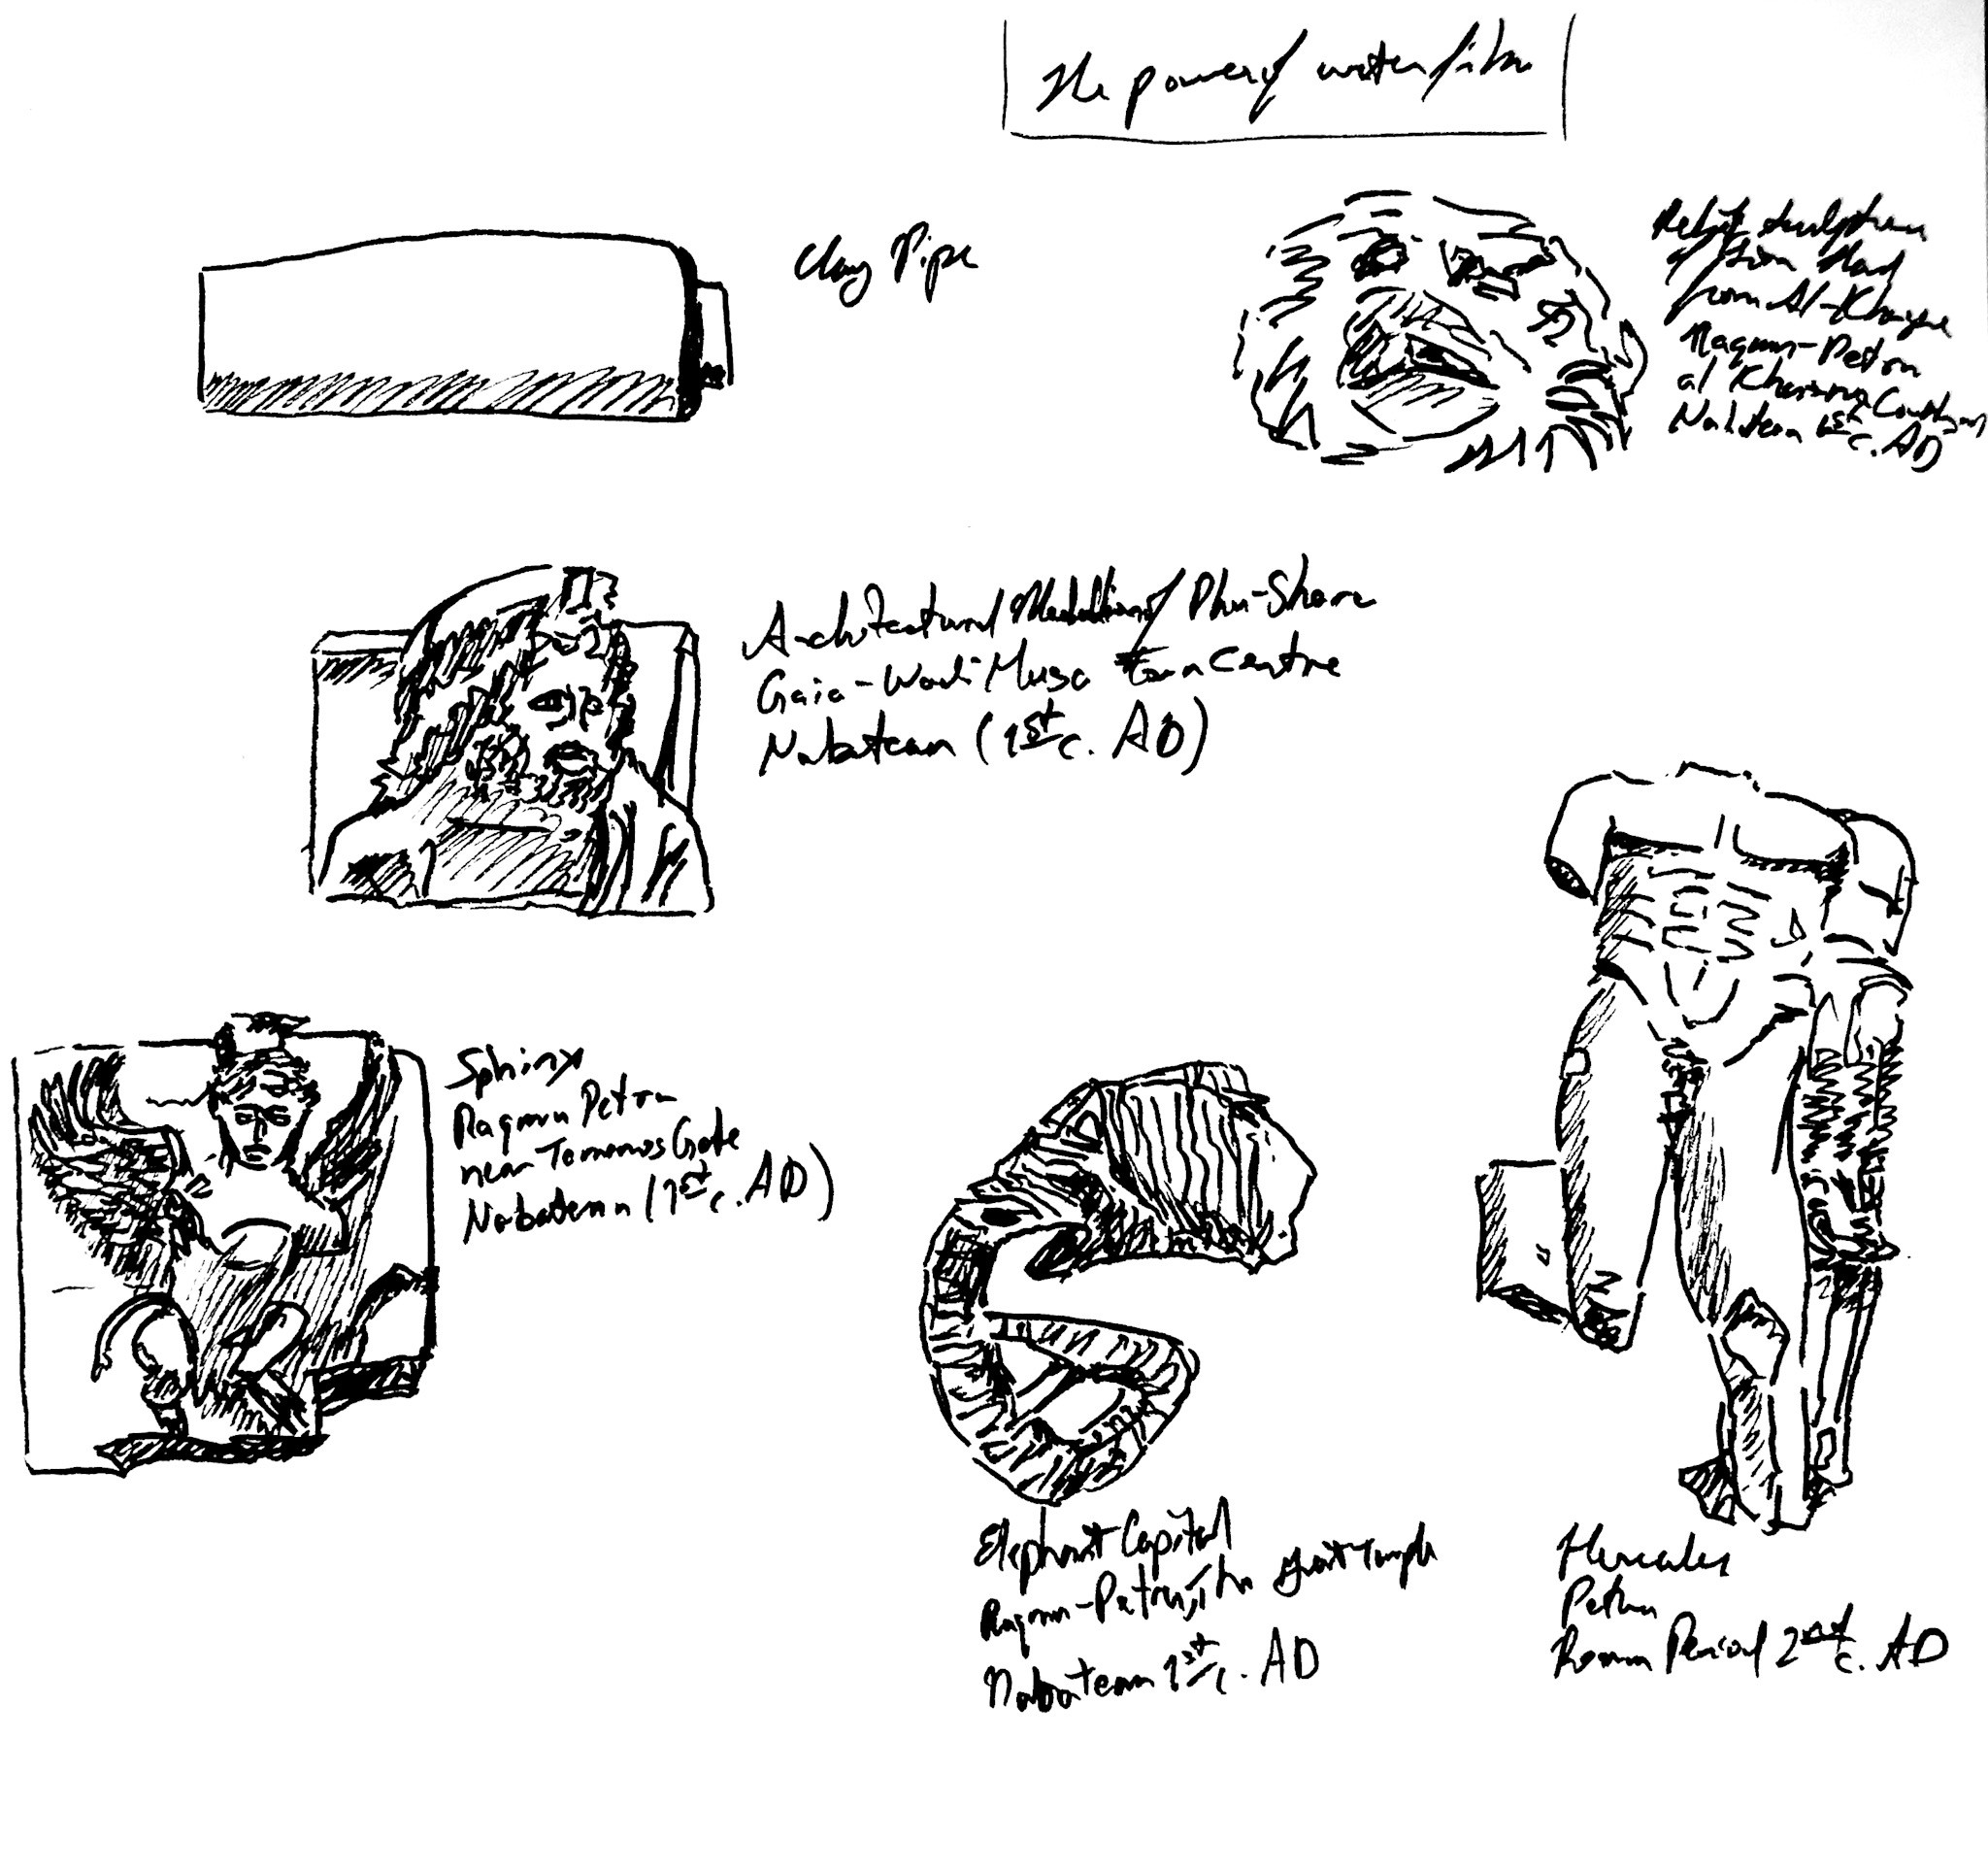 The power of water film
Clay Pipe
Relief sculpture
of Lion Head
from Al-
Raqmu-Petra
al Courtyard
Nabatean 1st c. AD
Architectural Medallion of Dhu-Shara
Gaia-Wadi Musa Town Centre
Nabatean (1st c. AD)
Sphinx
Raqmu Petra
near Temenos Gate
Nabatean (1st c. AD)
Elephant Capital
Raqmu-Petra, the great temple
Nabatean 1st c. AD
Hercules
Petra
Roman Period 2nd c. AD